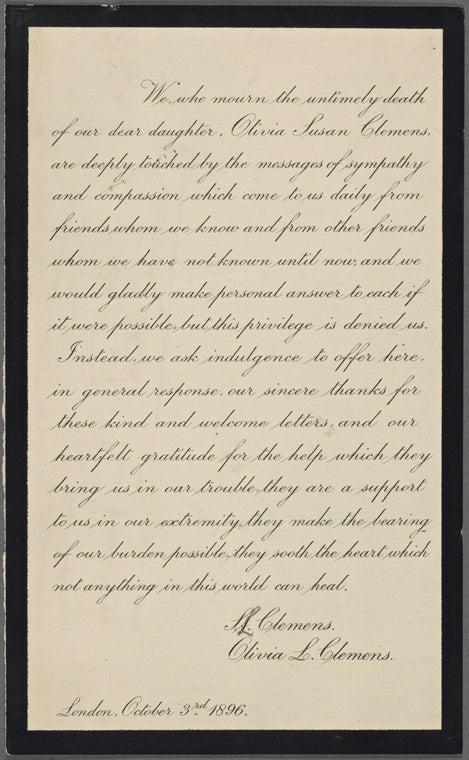 We, who mourn the untimely death
of our dear daughter, Olivia Susan Clemens,
are deeply touched by the messages of sympathy
and compassion which come to us daily from
friends whom we know and from other friends
whom we have not known until now, and we
would gladly make personal answer to each if
it were possible, but this privilege is denied us.
Instead, we ask indulgence to offer here,
in general response, our sincere thanks for
these kind and welcome letters, and our
heartfelt gratitude for the help which they
bring us in our trouble, they are a support
to us in our extremity, they make the bearing
of our burden possible, they sooth the heart, which
not anything in this world can heal.
S. L. Clemens.
Olivia L. Clemens.
London, October 3rd 1896.